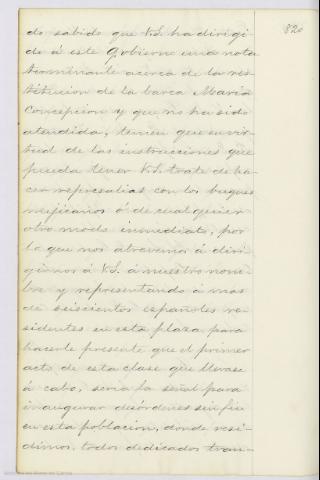 820
do sabido que V.S. ha dirigi-
do á este Gobierno una nota
terminante acerca de la res-
titucion de la barca Maria
Concepcion y que no ha sido
atendida, temen que en vir-
tud de las instrucciones que
pueda tener V.S. trate de ha-
cer represalias con los buques
mejicanos ó de cualquier
otro modo inmediato, por
lo que nos atrevemos á diri-
girnos á V.S. á nuestro nom-
bre y representando á mas
de seiscientos españoles re-
sidentes en esta plaza para
hacerle presente que el primer
acto de esta clase que llevase
á cabo, seria la señal para
inaugurar desórdenes sin fin
en esta poblacion, donde resi-
dimos, todos dedicados tran-